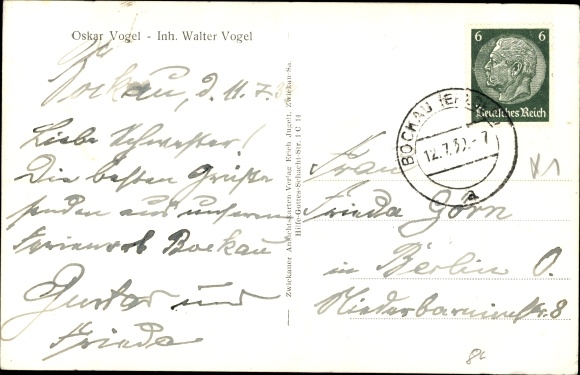 Oskar Vogel - Inh. Walter Vogel
Bockau, d. 11.7.
Liebe Schwester!
Die besten Grüße
senden aus unserem
Ferienort Bockau
Gustav und
Frieda
Zwickauer Ansichtskarten-Verlag Erich Jugelt, Zwickau-Sa.
Hilfe-Gottes-Schacht-Str. 1 C 14
6 6
Deutsches Reich
BOCKAU
12.7.39.-7
a
Frau
Frieda Gorn
in Berlin O.
Niederbarnimstr. 8